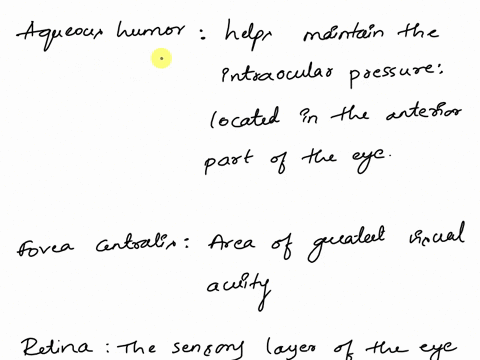 Aqueous humor : helps maintain the
intraocular pressure:
located in the anterior
part of the eye.
Fovea centralis : Area of greatest visual
acuity
Retina : The sensory layer of the eye